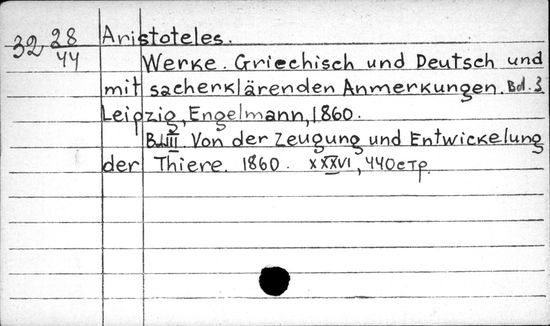 32 28/44 Aristoteles.
Werke. Griechisch und Deutsch und
mit sacherklärenden Anmerkungen. Bd. 3
Leipzig, Engelmann, 1860.
Bd.III. Von der Zeugung und Entwickelung
der Thiere. 1860. XXXVI, 440 стр.